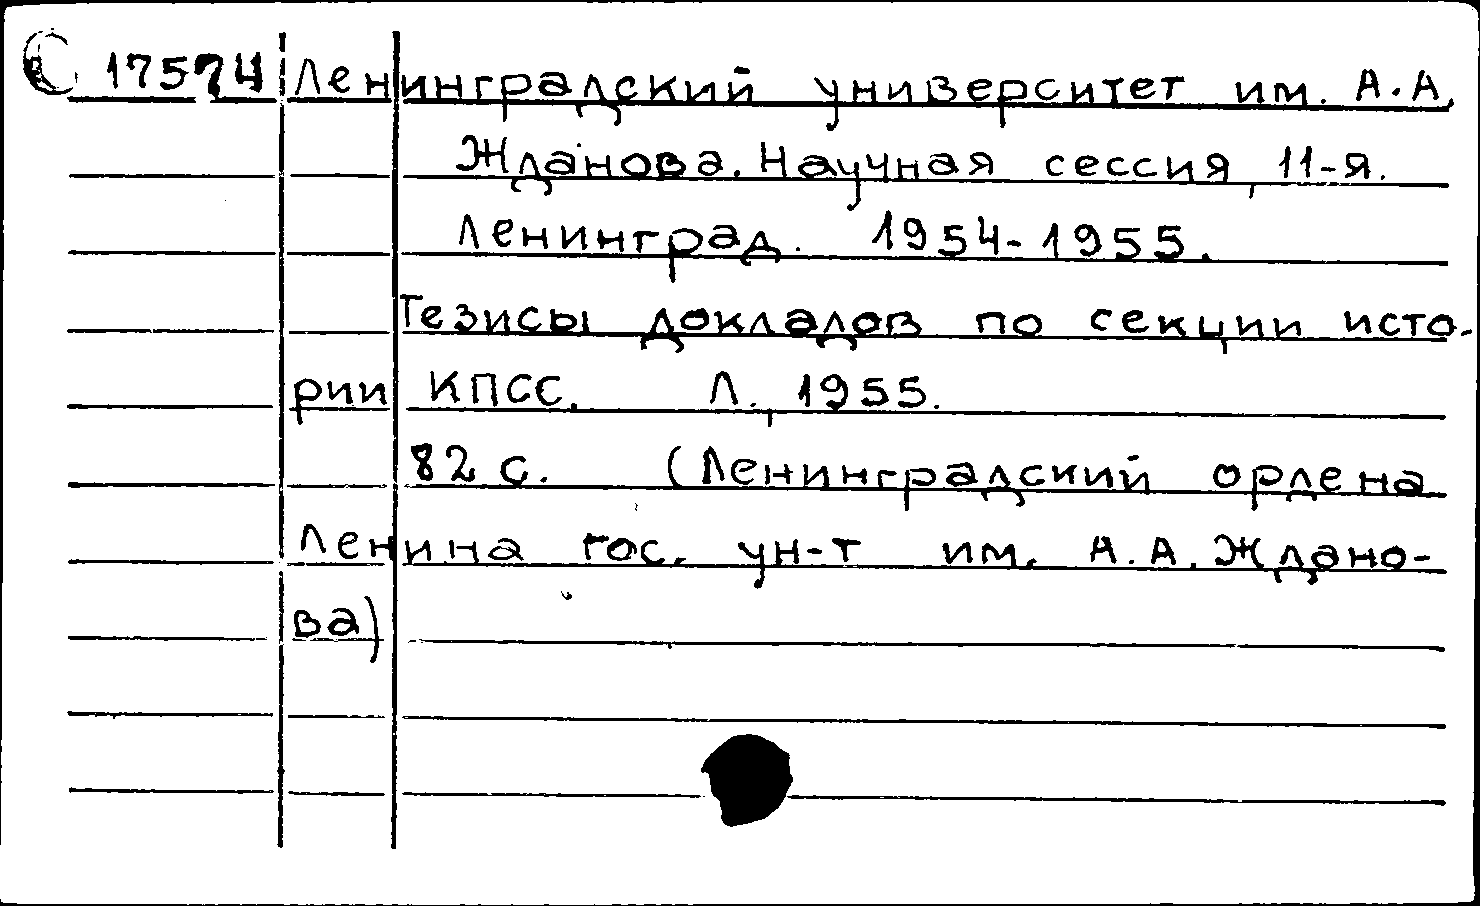 17574 Ленинградский университет им. А.А.
Жданова. Научная сессия, 11-я.
Ленинград. 1954-1955.
Тезисы докладов по секции исто-
рии КПСС. Л., 1955.
82 с. (Ленинградский ордена
Ленина гос. ун-т им. А.А. Ждано-
ва)